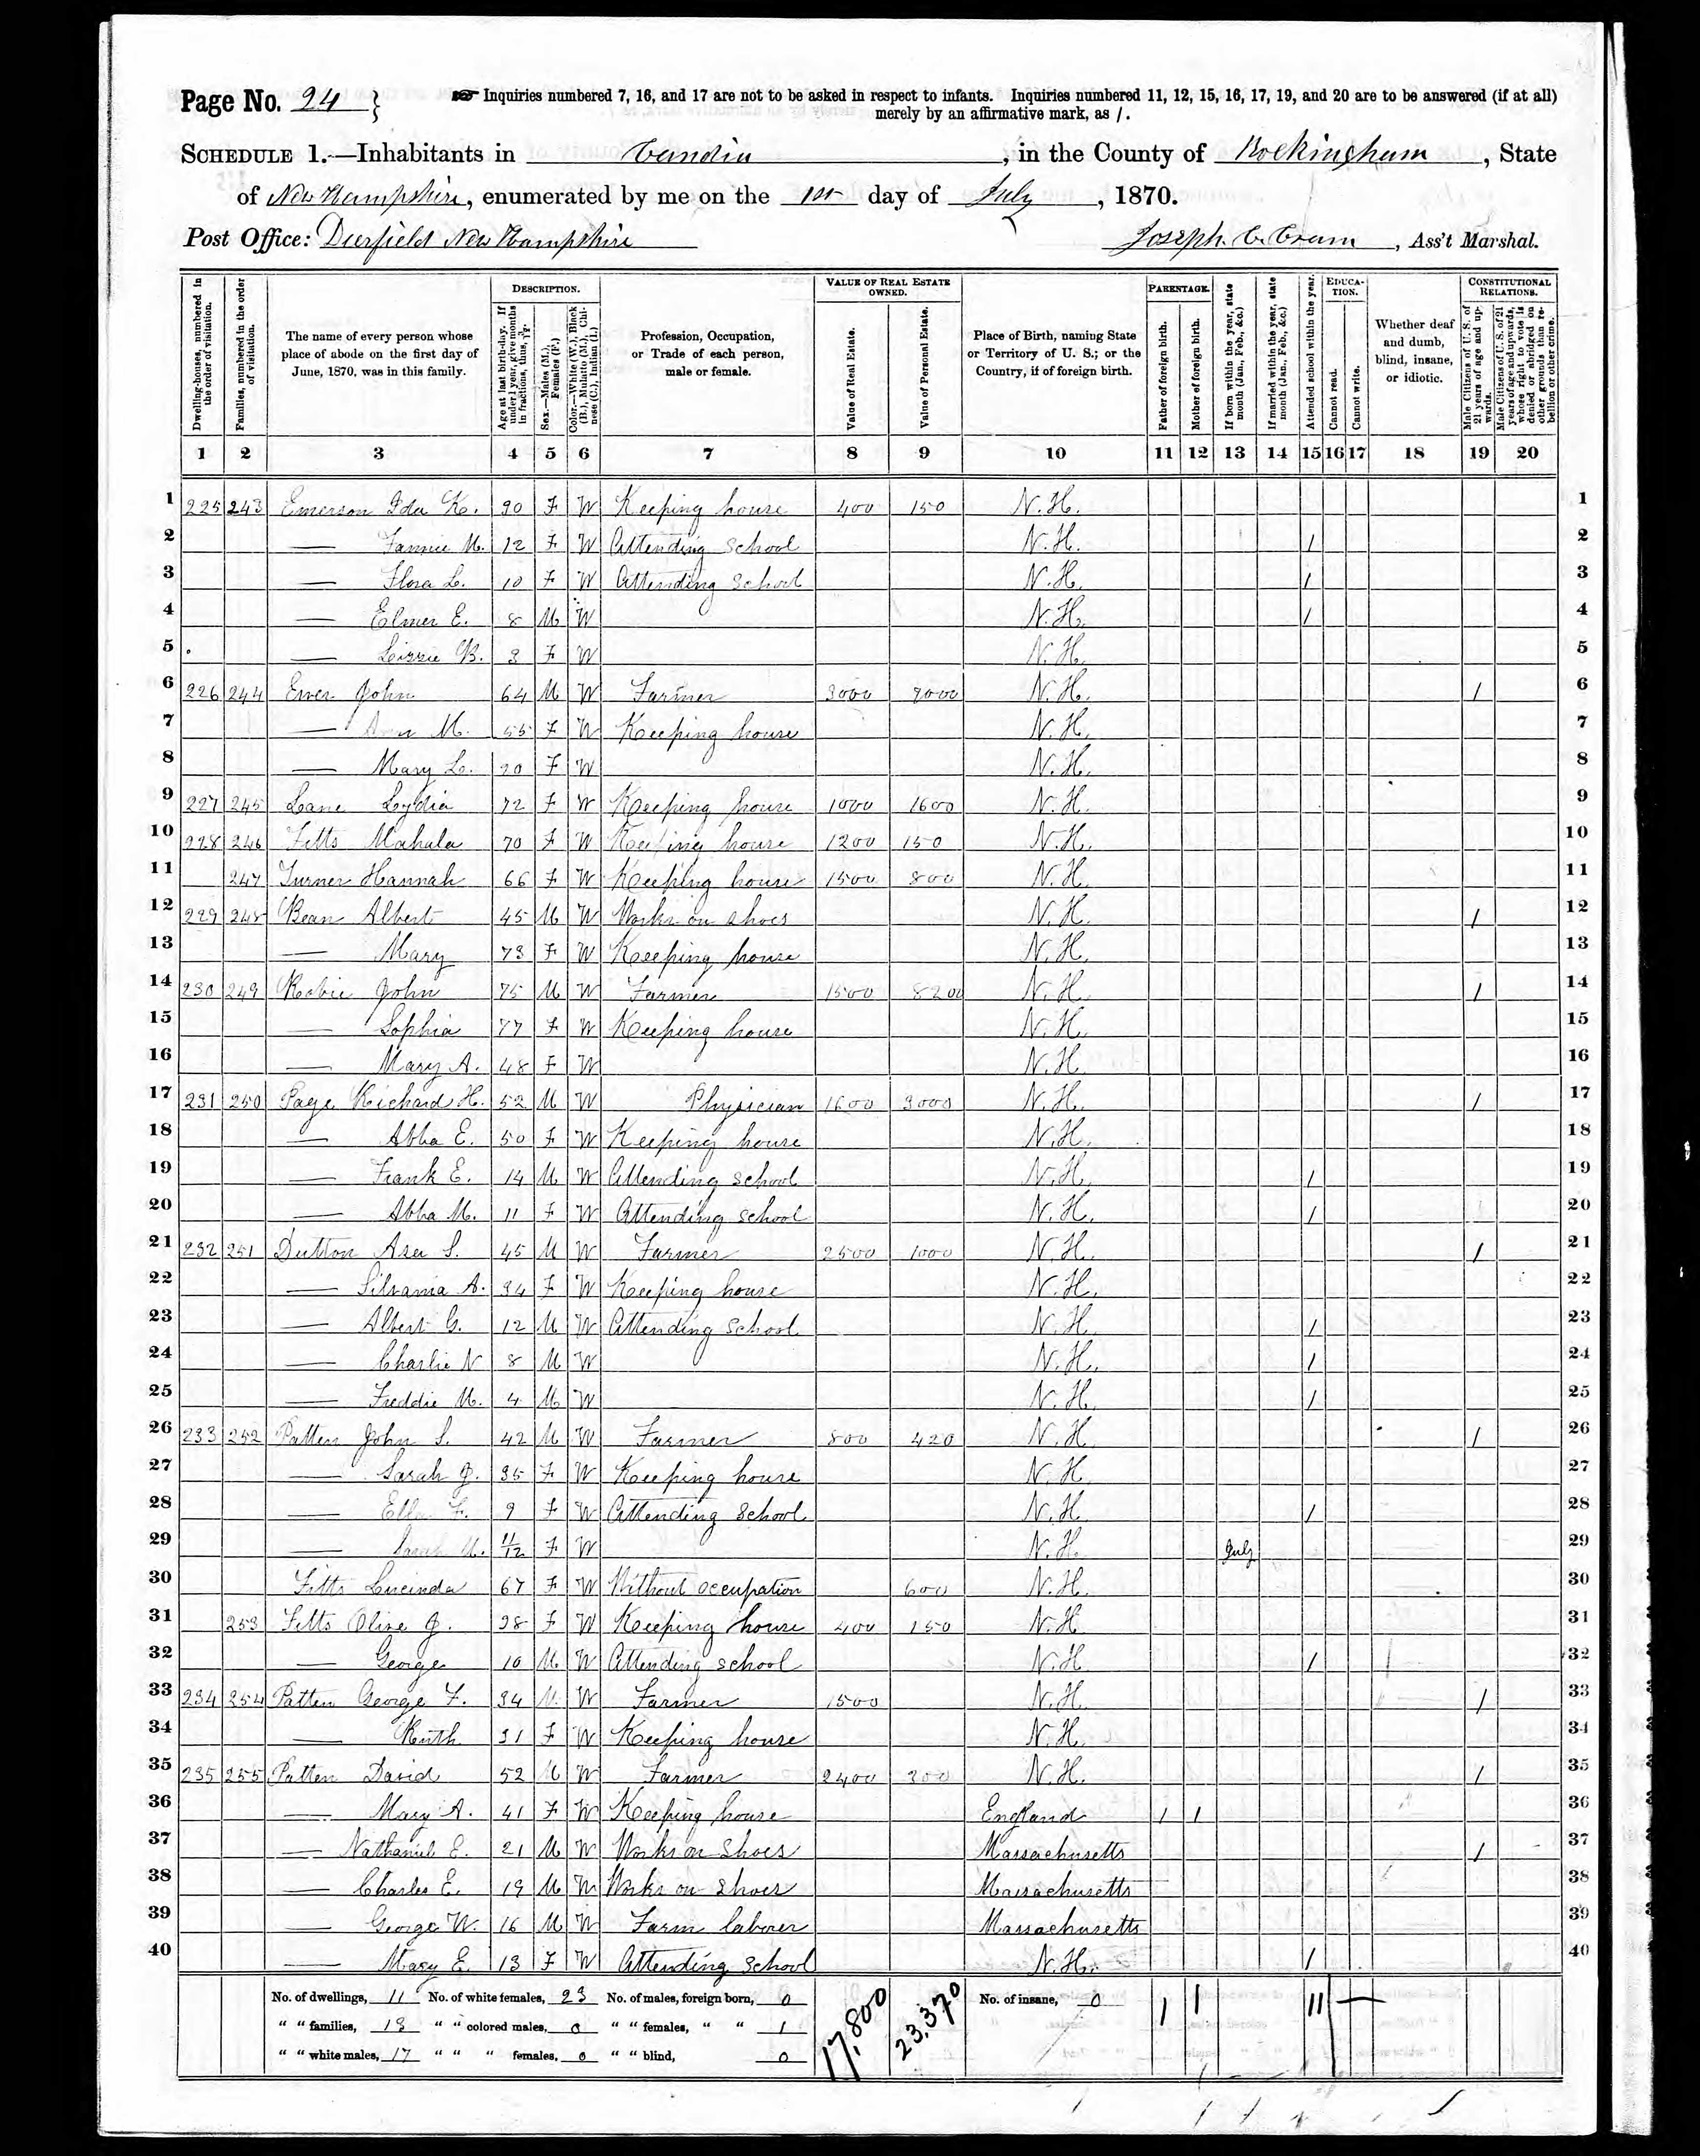 Page No. 24 }
☞ Inquiries numbered 7, 16, and 17 are not to be asked in respect to infants. Inquiries numbered 11, 12, 15, 16, 17, 19, and 20 are to be answered (if at all)
merely by an affirmative mark, as /.
SCHEDULE 1.—Inhabitants in Candia, in the County of Rockingham, State
of New Hampshire, enumerated by me on the 1st day of July, 1870.
Post Office: Deerfield New Hampshire Joseph C. Cram, Ass't Marshal.
Dwelling-houses, numbered in the order of visitation.
Families, numbered in the order of visitation.
The name of every person whose place of abode on the first day of June, 1870, was in this family.
DESCRIPTION.
Age at last birth-day. If under 1 year, give months in fractions, thus, 3/12.
Sex.—Males (M.), Females (F.)
Color.—White (W.), Black (B.), Mulatto (M.), Chinese (C.), Indian (I.)
Profession, Occupation, or Trade of each person, male or female.
VALUE OF REAL ESTATE OWNED.
Value of Real Estate.
Value of Personal Estate.
Place of Birth, naming State or Territory of U. S.; or the Country, if of foreign birth.
PARENTAGE.
Father of foreign birth.
Mother of foreign birth.
If born within the year, state month (Jan., Feb., &c.)
If married within the year, state month (Jan., Feb., &c.)
Attended school within the year.
EDUCATION.
Cannot read.
Cannot write.
Whether deaf and dumb, blind, insane, or idiotic.
CONSTITUTIONAL RELATIONS.
Male Citizens of U. S. of 21 years of age and upwards.
Male Citizens of U. S. of 21 years of age and upwards, whose right to vote is denied or abridged on other grounds than rebellion or other crime.
1 2 3 4 5 6 7 8 9 10 11 12 13 14 15 16 17 18 19 20
1 225 243 Emerson Ida K. 30 F W Keeping house 400 150 N.H. 1
2 — Fannie M. 12 F W Attending School N.H. / 2
3 — Flora L. 10 F W Attending School N.H. / 3
4 — Elmer E. 8 M W N.H. / 4
5 — Lizzie B. 3 F W N.H. 5
6 226 244 Emer John 64 M W Farmer 3000 7000 N.H. / 6
7 — Ann M. 55 F W Keeping house N.H. 7
8 — Mary L. 20 F W N.H. 8
9 227 245 Lane Lydia 72 F W Keeping house 1000 1600 N.H. 9
10 228 246 Fitts Mahala 70 F W Keeping house 1200 150 N.H. 10
11 247 Turner Hannah 66 F W Keeping house 1500 800 N.H. 11
12 229 248 Bean Albert 45 M W Works on shoes N.H. / 12
13 — Mary 73 F W Keeping house N.H. 13
14 230 249 Robie John 75 M W Farmer 1500 8200 N.H. / 14
15 — Sophia 77 F W Keeping house N.H. 15
16 — Mary A. 48 F W N.H. 16
17 231 250 Page Richard H. 52 M W Physician 1600 3000 N.H. / 17
18 — Abba E. 50 F W Keeping house N.H. 18
19 — Frank E. 14 M W Attending School N.H. / 19
20 — Abba M. 11 F W Attending School N.H. / 20
21 232 251 Dutton Asa S. 45 M W Farmer 2500 1000 N.H. / 21
22 — Silvania A. 34 F W Keeping house N.H. 22
23 — Albert G. 12 M W Attending School N.H. / 23
24 — Charlie N 8 M W N.H. / 24
25 — Freddie M. 4 M W N.H. / 25
26 233 252 Patten John S. 42 M W Farmer 800 420 N.H. / 26
27 — Sarah J. 35 F W Keeping house N.H. 27
28 — Ella F. 9 F W Attending School N.H. / 28
29 — Sarah M. 11/12 F W N.H. July 29
30 Fitts Lucinda 67 F W Without occupation 600 N.H. 30
31 253 Fitts Olive J. 38 F W Keeping house 400 150 N.H. 31
32 — George 10 M W Attending school N.H. / 32
33 234 254 Patten George F. 34 M W Farmer 1500 N.H. / 33
34 — Ruth 31 F W Keeping house N.H. 34
35 235 255 Patten David 52 M W Farmer 2400 300 N.H. / 35
36 — Mary A. 41 F W Keeping house England / / 36
37 — Nathaniel E. 21 M W Works on Shoes Massachusetts / 37
38 — Charles E. 19 M W Works on Shoes Massachusetts 38
39 — George W. 16 M W Farm laborer Massachusetts 39
40 — Mary E. 13 F W Attending School N.H. / 40
No. of dwellings, 11 No. of white females, 23 No. of males, foreign born, 0 17,800 23,370 No. of insane, 0 1 1 11 —
" " families, 13 " " colored males, 0 " " females, " " 1
" " white males, 17 " " " females, 0 " " blind, 0